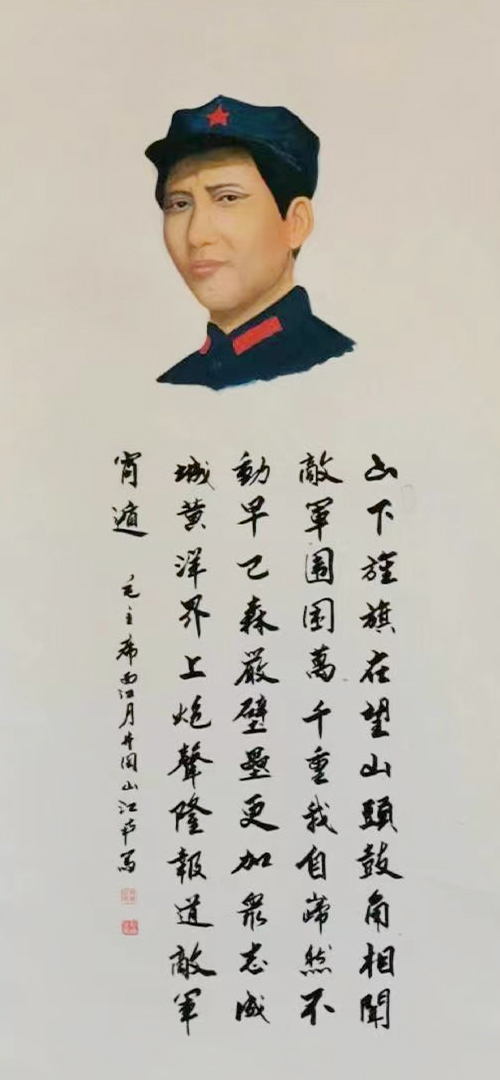 山下旌旗在望山頭鼓角相聞
敵軍围困萬千重我自巋然不
動早已森嚴壁壘更加衆志成
城黄洋界上炮聲隆報道敵軍
宵遁
毛主席西江月井岡山江写